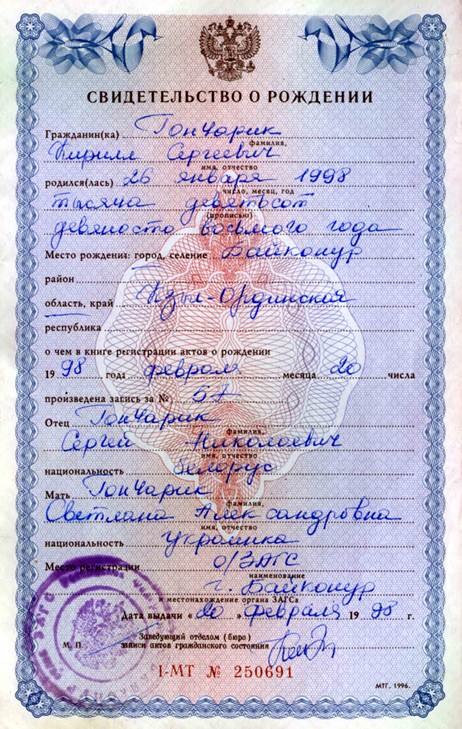 СВИДЕТЕЛЬСТВО О РОЖДЕНИИ
Гражданин(ка) Гончарик
фамилия,
Кирилл Сергеевич
имя, отчество
родился(лась) 26 января 1998
число, месяц, год
тысяча девятьсот
(прописью)
девяносто восьмого года
Место рождения: город, селение Байконур
район
область, край Кзыл-Ординская
республика
о чем в книге регистрации актов о рождении
19 98 года февраля месяца 20 числа
произведена запись за № 57
Отец Гончарик
фамилия,
Сергей Николаевич
имя, отчество
национальность белорус
Мать Гончарик
фамилия,
Светлана Александровна
имя, отчество
национальность украинка
Место регистрации о/ЗАГС
наименование
г. Байконур
местонахождение органа ЗАГСа
Дата выдачи « 20 » февраля 19 98 г.
М. П. Заведующий отделом (бюро)
записи актов гражданского состояния
I-МТ № 250691
МТГ, 1996.